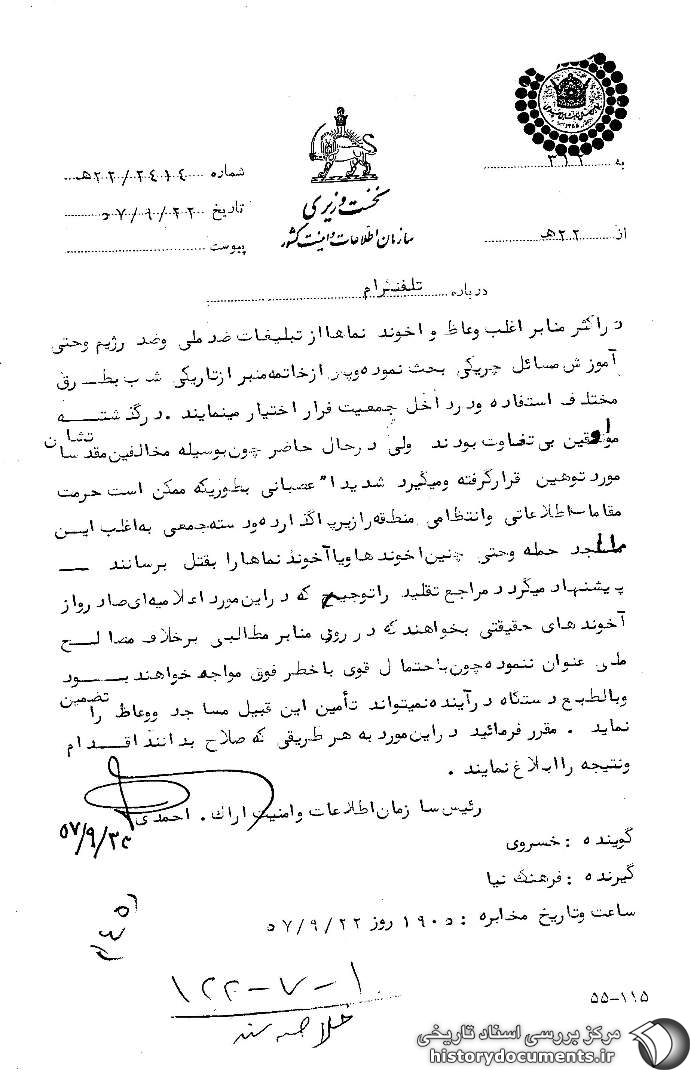 به ۳۱۲
شماره ۲۴۱۰۴/ ۲۲هـ
نخست وزیری
تاریخ ۵۷/۹/۲۲
سازمان اطلاعات و امنیت کشور
از ۲۲هـ
پیوست
درباره تلفنگرام
در اکثر منابر اغلب وعاظ و اخوند نماها از تبلیغات ضد ملی وضد رژیم وحتی
آموزش مسائل چریکی بحث نموده وپس از خاتمه منبر از تاریکی شب بطرق
مختلف استفاده ودر داخل جمعیت فرار اختیار مینمایند . در گذشته
موافقین بی تفاوت بودند ولی در حال حاضر چون بوسیله مخالفین مقدساتشان
مورد توهین قرار گرفته ومیگیرد شدیدا" عصبانی بطوریکه ممکن است حرمت
مقامات اطلاعاتی وانتظامی منطقه را زیرپا گذارده ودسته جمعی به اغلب ایـن
مساجد حمله وحتی چنین اخوندها ویا آخوند نماها را بقتل برسانند —
پیشنهاد میگردد مراجع تقلید را توجیح که در این مورد اعلامیه ای صادر واز
آخوندهای حقیقتی بخواهند که در روی منابر مطالبی برخلاف مصالـح
ملی عنوان ننموده چون باحتمال قوی با خطر فوق مواجه خواهند بـود
وبالطبع دستگاه در آینده نمیتواند تأمین این قبیل مساجد ووعاظ را تضمین
نماید . مقرر فرمائید در این مورد به هر طریقی که صلاح بدانند اقدام
ونتیجه را ابلاغ نمایند .
رئیس سازمان اطلاعات وامنیت اراک . احمدی
۵۷/۹/۲۳
گوینده : خسروی
گیرنده : فرهنگ نیا
ساعت وتاریخ مخابره : ۱۹۰۵ روز ۵۷/۹/۲۲
۱۲۲-۷-۱
خلاصه سند
۵۵-۱۱۵
مرکز بررسی اسناد تاریخی
historydocuments.ir